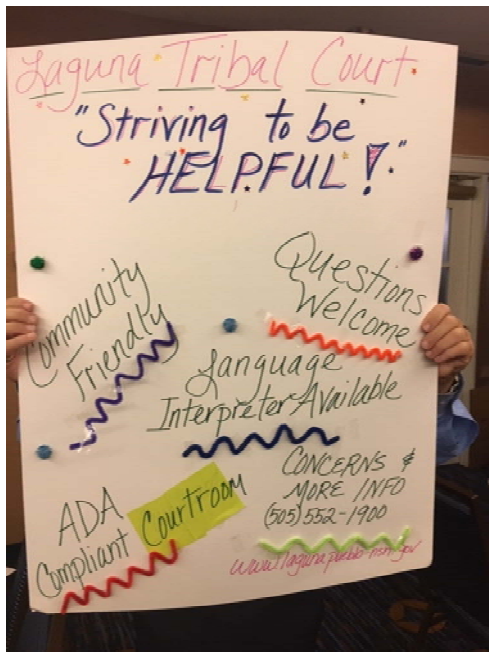 Laguna Tribal Court
"Striving to be
HELPFUL!"
Community
Friendly
Questions
Welcome
Language
Interpreter Available
ADA
Compliant Courtroom
CONCERNS &
MORE INFO
(505) 552-1900
www.lagunapueblo-nsn.gov